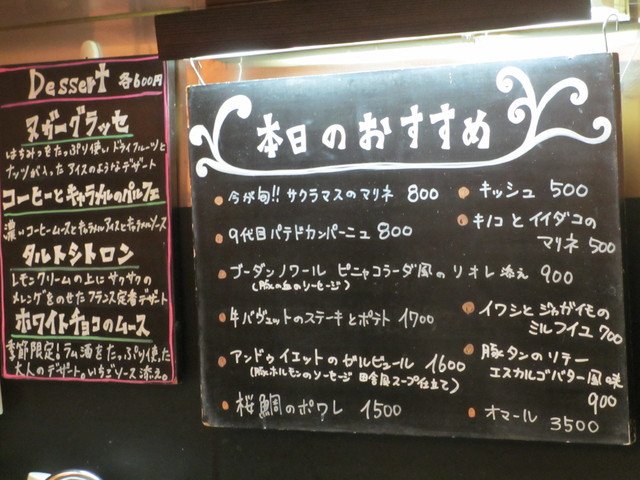 Dessert 各600円
ヌガーグラッセ
はちみつをたっぷり使いドライフルーツと
ナッツが入ったアイスのようなデザート
コーヒーとキャラメルのパルフェ
濃いコーヒームースとキャラメルアイスとキャラメルソース
タルトシトロン
レモンクリームの上にサクサクの
メレンゲをのせたフランス定番デザート
ホワイトチョコのムース
季節限定!ラム酒をたっぷり使った
大人のデザートいちごソース添え。
本日のおすすめ
今が旬!! サクラマスのマリネ 800
9代目パテドカンパーニュ 800
ブーダンノワール ピニャコラーダ風のリオレ添え 900
(豚の血のソーセージ)
牛バヴェットのステーキとポテト 1700
アンドゥイエットのガルビュール 1600
(豚ホルモンのソーセージ 田舎風スープ仕立て)
桜鯛のポワレ 1500
キッシュ 500
キノコとイイダコの
マリネ 500
イワシとジャガイモの
ミルフイユ 700
豚タンのソテー
エスカルゴバター風味
900
オマール 3500